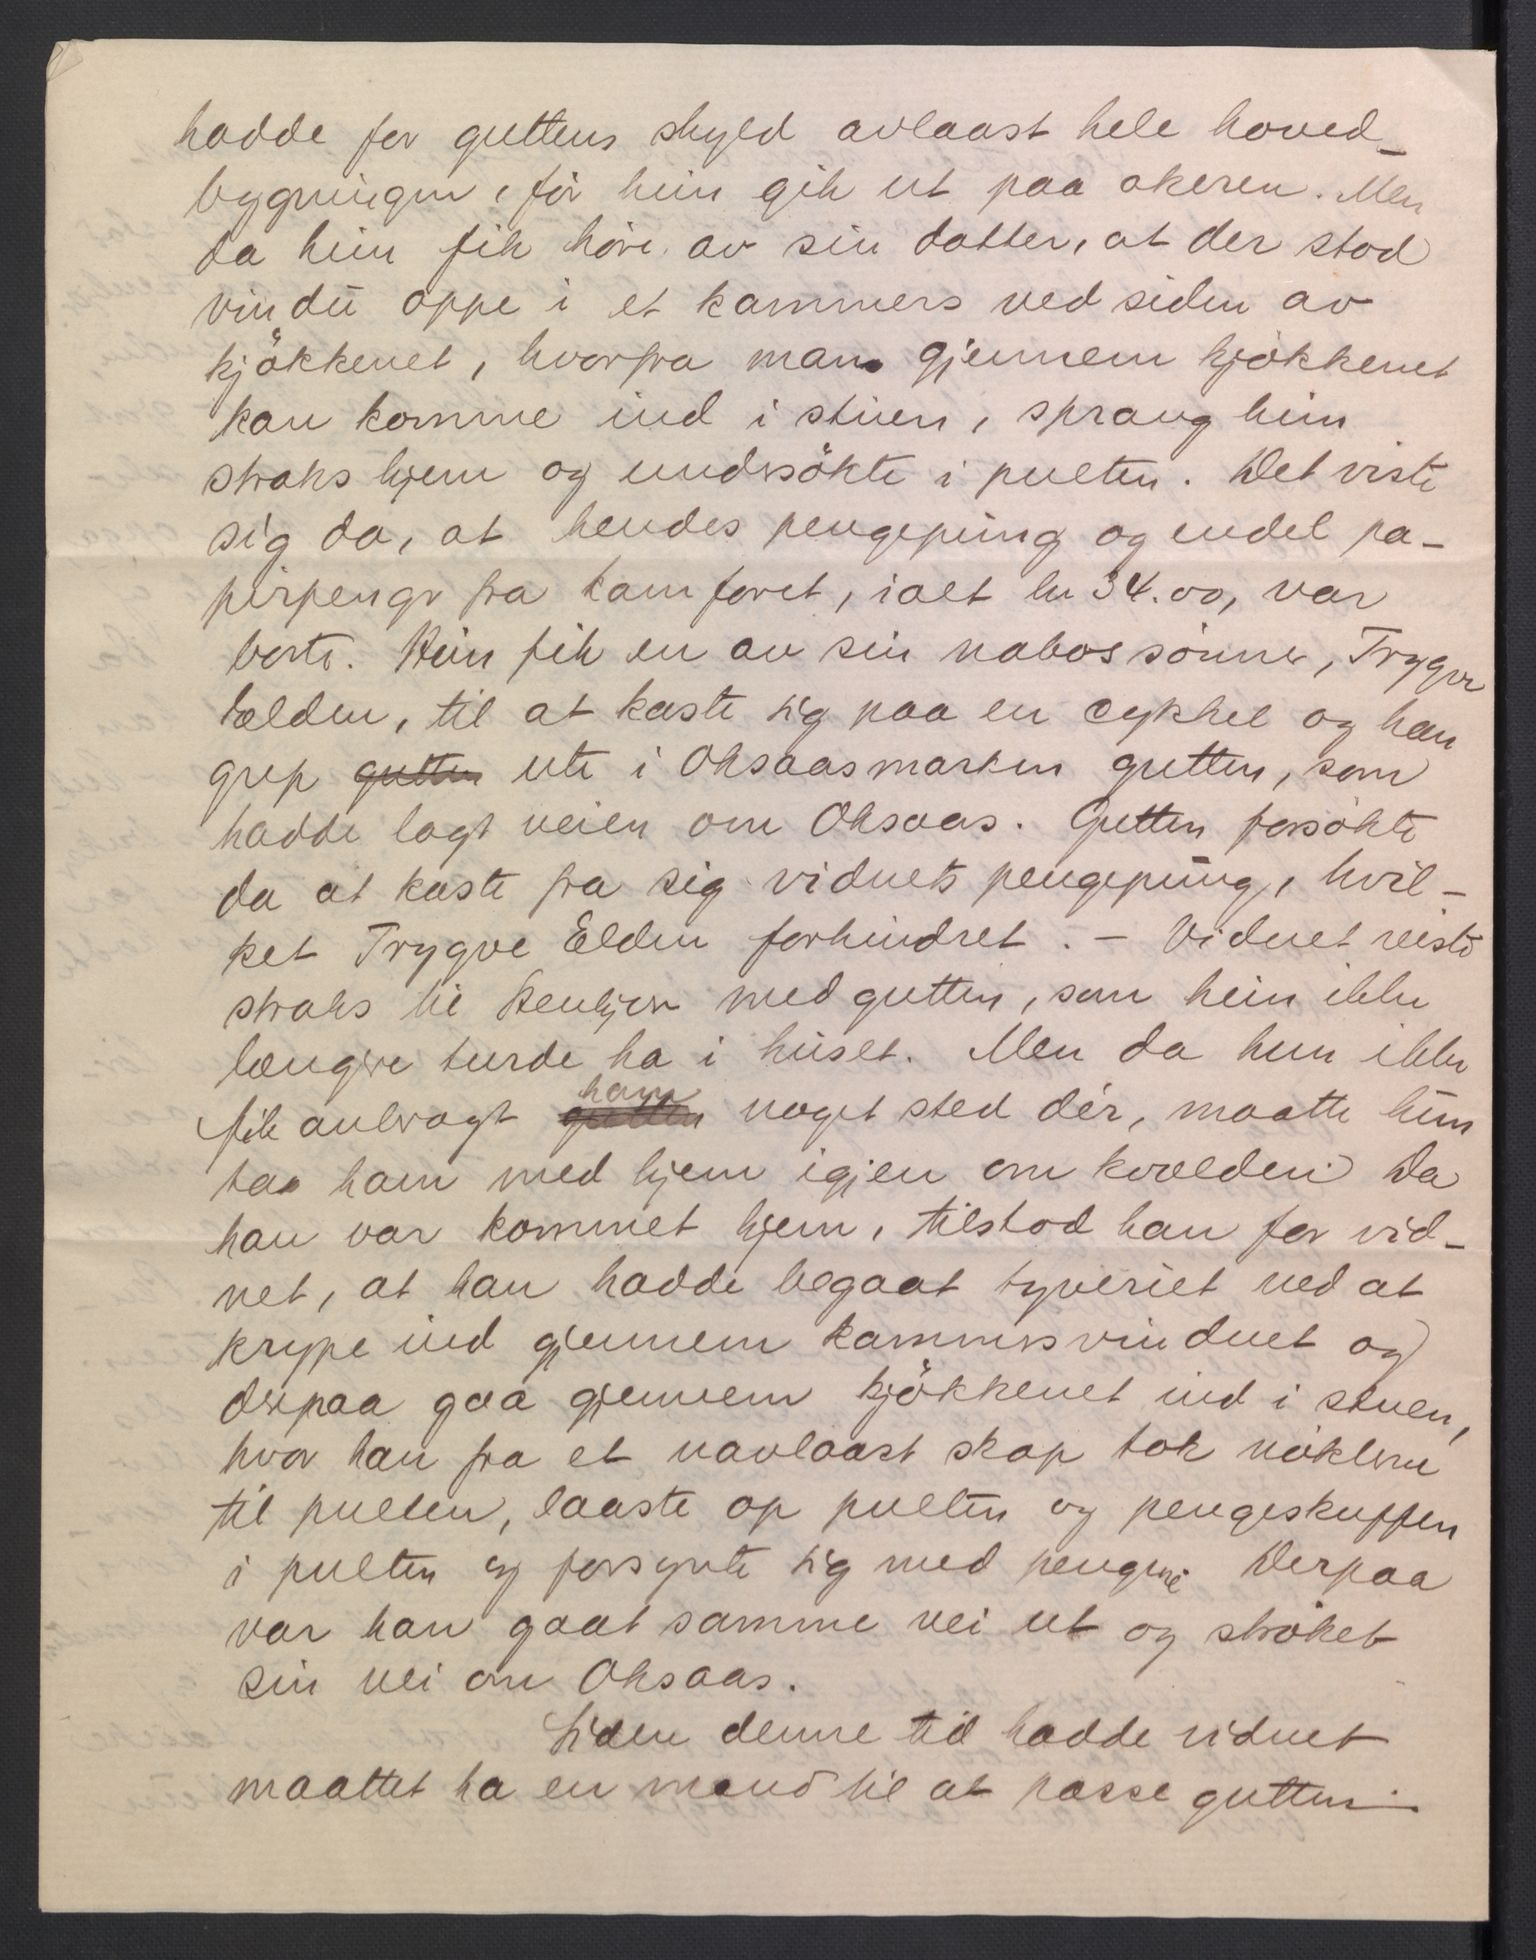 hadde for guttens skyld avlaast hele hoved-
bygningen, før hun gik ut paa akeren. Men
da hun fik høre av sin datter, at der stod
vindu oppe i et kammers ved siden av
kjökkenet, hvorfra man gjennem kjøkkenet
kan komme ind i stuen, sprang hun
straks hjem og undersökte i pulten. Det viste
sig da, at hendes pengepung og endel pa-
pirpenger fra kamforet, ialt kr 34.00, var
borte. Hun fik en av sin nabos sønner, Trygve
Elden, til at kaste sig paa en cykkel og han
grep gutten ute i Oksaasmarken gutten, som
hadde lagt veien om Oksaas. Gutten forsøkte
da at kaste fra sig vidnets pengepung, hvil-
ket Trygve Elden forhindret. – Vidnet reiste
straks til Stenkjær med gutten, som hun ikke
længere turde ha i huset. Men da hun ikke
fik anbragt gutten ham noget sted dér, maatte hun
ta ham med hjem igjen om kvælden. Da
han var kommet hjem, tilstod han for vid-
net, at han hadde begaat tyveriet ved at
krype ind gjennem kammersvinduet og
derpaa gaa gjennem kjökkenet ind i stuen,
hvor han fra et uavlaast skap tok nøklene
til pulten, laaste op pulten og pengeskuffen
i pulten og forsynte sig med pengene. Derpaa
var han gaat samme vei ut og strøket
sin vei om Oksaas.
Siden denne tid hadde vidnet
maattet ha en mand til at passe gutten.